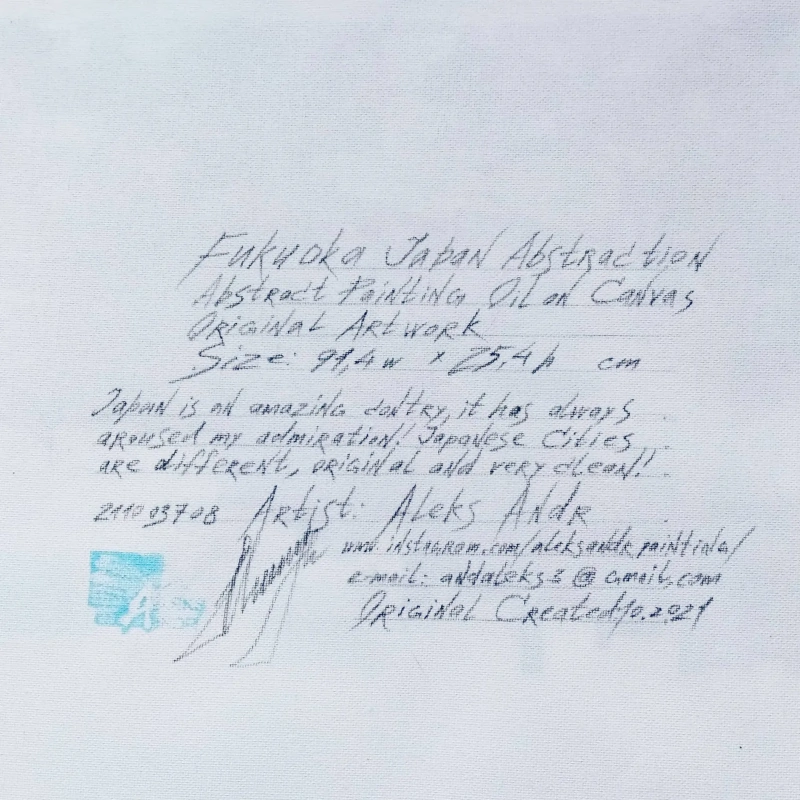 Fukuoka Japan Abstraction
Abstract Painting Oil on Canvas
Original Artwork
Size: 91,4w x 25,4h cm
Japan is an amazing contry, it has always
aroused my admiration! Japanese Cities
are different, original and very clean!
211003708 Artist: Aleks Andr
www.instagram.com/aleksandr.painting/
e-mail: andaleks3@gmail.com
Original Created 10.2021